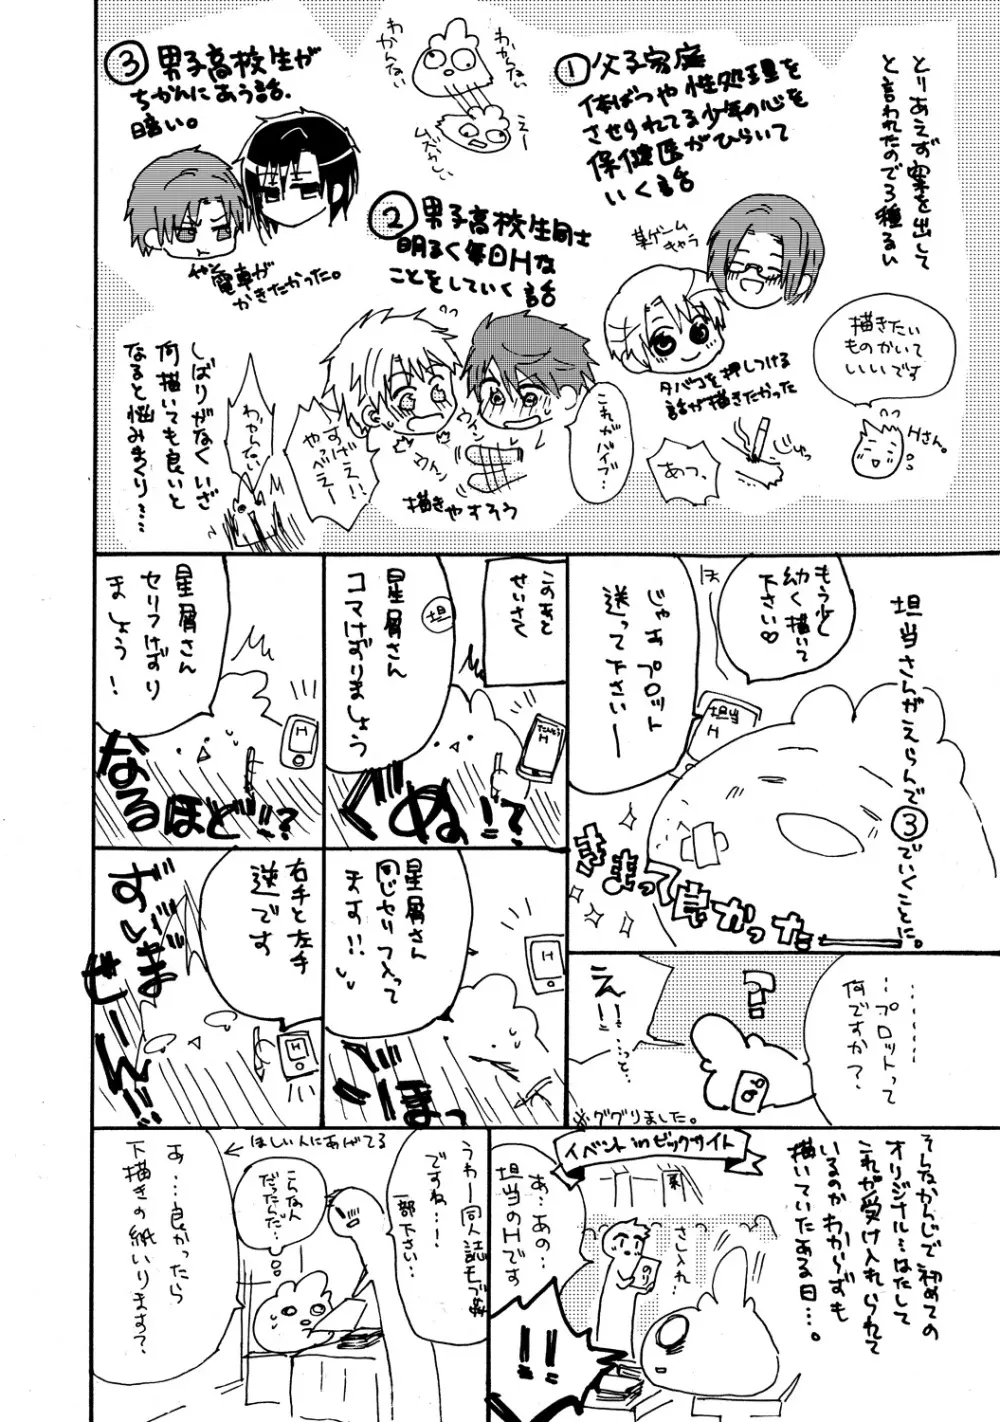 とりあえず案を出して
と言われたので3種るい
①父子家庭
体ばつや性処理を
させられてる少年の心を
保健医がひらいて
いく話
某ゲーム
キャラ
描きたい
ものかいて
いいです
Hさん。
タバコを押しつける
話が描きたかった
じゅっ
あつ、
わからない
わかんない
えー
②男子高校生同士
明るく毎日Hな
ことをしていく話
これが
バイブ…
すげえ!!
やっべえー
ウィン
ウィン
描きやすそう
③男子高校生が
ちかんにあう話。
暗い。
電車が
かきたかった。
しばりがなくいざ
何描いても良いと
なると悩みまくり…
わからない
担当さんがえらんで③でいくことに。
もう少し
幼く描いて
下さい♡
ほ
担当
H
じゃあプロット
送って下さいー
きまって良かったー
………
…プロットって
何ですか?
?
えー!!
…っと…
※ググりました。
このあと
せいさく
担
星屑さん
コマけずりましょう
H
ぐぬ!?
星屑さん
セリフけずり
ましょう!
H
なるほど!!?
星屑さん
同じセリフ入って
ます!!
H
右手と左手
逆です
H
そんなかんじで初めての
オリジナル…はたして
これが受け入れられて
いるのかわか〜ずも
描いていたある日…。
イベントinビックサイト
さし入れ
のり
あ…あの…
担当のHです
!!
うわー同人誌モブ姦
ですね…!
一部下さい…
こんな人
だったんだ…
←ほしい人にあげてる
あ……良かったら
下描きの紙いります?